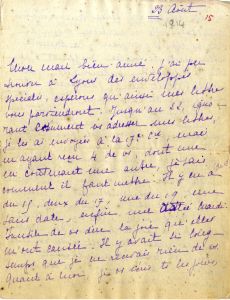 23 Août
15
1914
Mon mari bien aimé, j'ai pu
trouver à Lyon des enveloppes
spéciales, espérons qu'ainsi mes lettres
vous parviendront. Jusqu'au 22, igno-
rant comment vous adresser mes lettres,
je les ai envoyées à la 17e Cie, mais
en ayant reçu 4 de vs, dont une
en contenant une autre, je sais
comment il faut mettre. Il y en a
du 15, deux du 17, une du 19, une
sans date, enfin, une mardi.
Inutile de vs dire la joie qu'elles
m'ont causée. Il y avait si long-
temps que je ne recevais rien de vs
Quant à moi, je vs écris ts les jours,